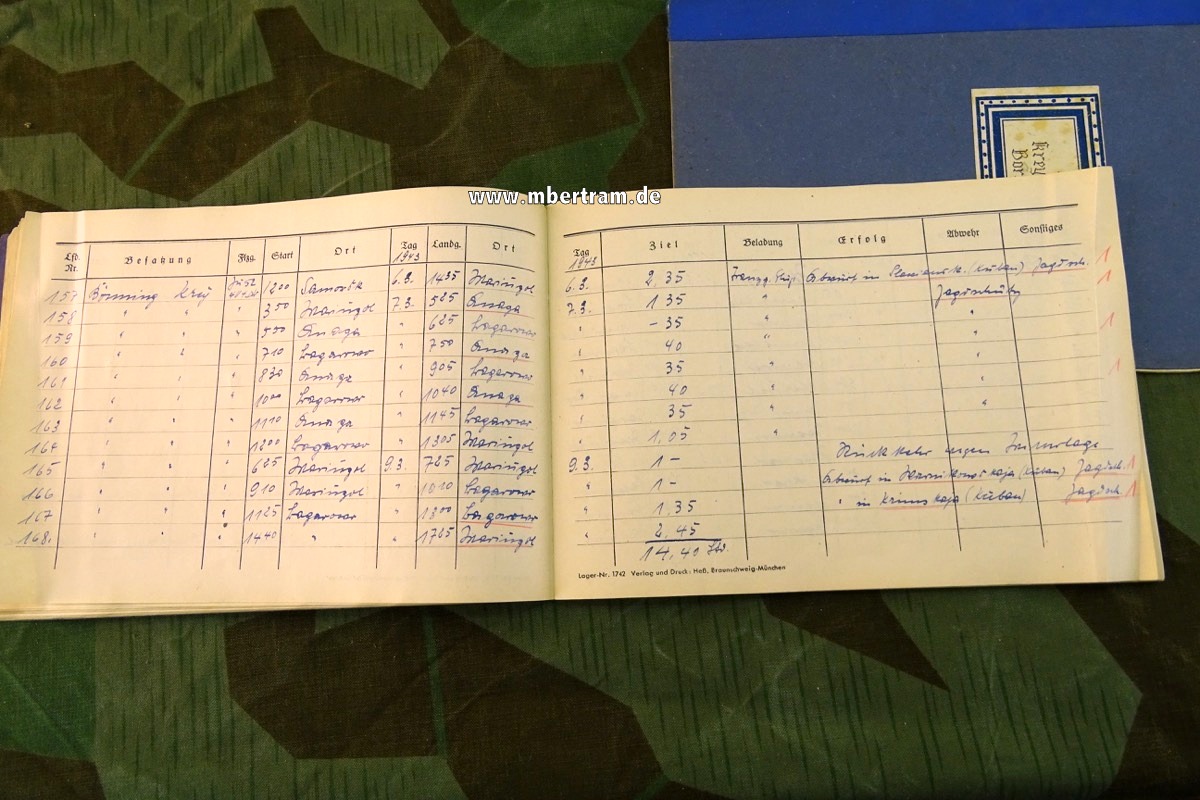 www.mbertram.de
Lfd. Nr. Besatzung Flzg. Start Ort Tag 1943 Landg. Ort
157 Bönning Krey 1200 6.3. 1435 Mariupol
158 " " " 350 Mariupol 7.3. 525 Anapa
159 " " " 550 Anapa " 625 Bagerowo
160 " " " 710 Bagerowo " 750 Anapa
161 " " " 830 Anapa " 905 Bagerowo
162 " " " 1000 Bagerowo " 1040 Anapa
163 " " " 1110 Anapa " 1145 Bagerowo
164 " " " 1200 Bagerowo " 1305 Mariupol
165 " " " 625 Mariupol 9.3. 725 Mariupol
166 " " " 910 Mariupol " 1010 Bagerowo
167 " " " 1125 Bagerowo " 1300 Bagerowo
168. " " " 1440 " " 1725 Mariupol
Tag 1943 Ziel Beladung Erfolg Abwehr Sonstiges
6.3. 2,35 Abwurf in (Kuban) Jagdsch. 1
7.3. 1 35 " Jagdschutz 1
" - 35 "
" 40 " " 1
" 35
" 40 " " 1
" 35 " "
" 1,05 "
9.3. 1 - Rückkehr wegen
" 1 - Abwurf in (Kuban) Jagdsch. 1
" 1.35 " in Krimskaja (Kuban) Jagdsch. 1
2.45
14,40 Std.
Lager-Nr. 1742 Verlag und Druck: Heß, Braunschweig-München